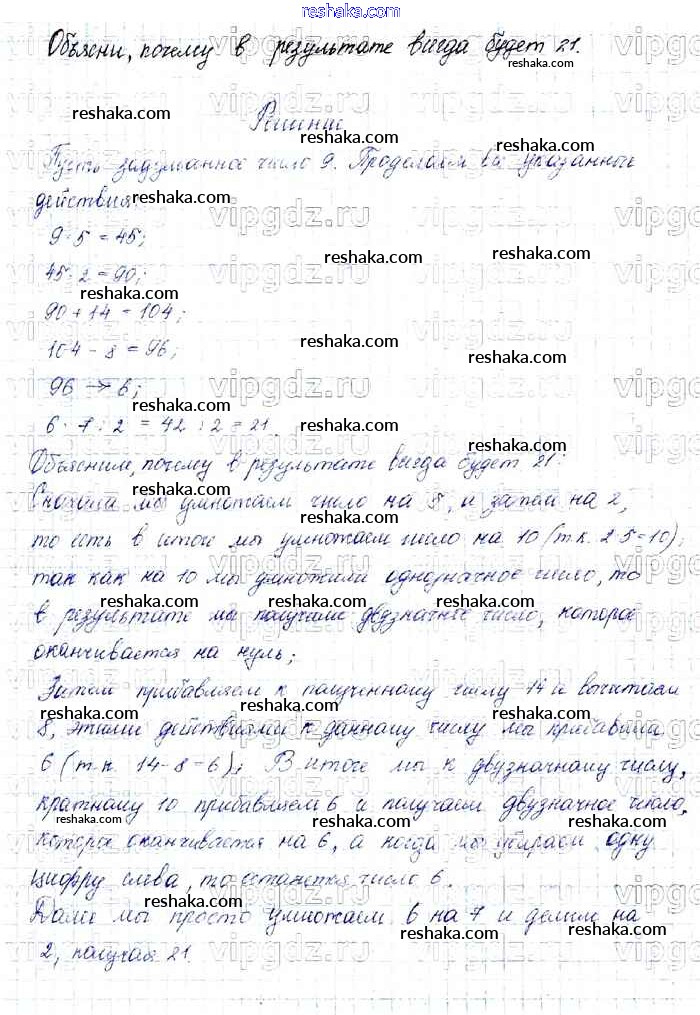 reshaka.com
Объясни, почему в результате всегда будет 21.
Решение
Пусть задуманное число 9. Проделаем все указанные
действия:
9 · 5 = 45;
45 · 2 = 90;
90 + 14 = 104;
104 - 8 = 96;
96 → 6;
6 · 7 : 2 = 42 : 2 = 21
Объясним, почему в результате всегда будет 21:
Сначала мы умножаем число на 5, и затем на 2,
то есть в итоге мы умножаем число на 10 (т.к. 2·5=10);
так как на 10 мы умножили однозначное число, то
в результате мы получили двузначное число, которое
оканчивается на нуль;
Затем прибавляем к полученному числу 14 и вычитаем
8, этими действиями к данному числу мы прибавили
6 (т.к. 14-8=6); В итоге мы к двузначному числу,
кратному 10 прибавляем 6 и получаем двузначное число,
которое оканчивается на 6, а когда мы убираем одну
цифру слева, то останется число 6.
Далее мы просто умножаем 6 на 7 и делим на
2, получая 21.